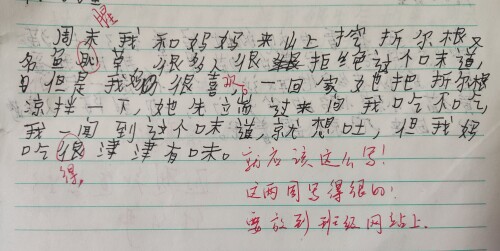 腥
周末,我和妈妈来山上挖折尔根,又
名鱼草,很多人很拒绝这个口味道,
但是我妈妈很喜欢。一回家她把折尔根
凉拌一下,她先端过来问我吃不吃,
我一闻到这个味道,就想吐,但我妈
吃很津津有味。
得,
就应该这么写!
这两周写得很的!
要放到班级网站上.